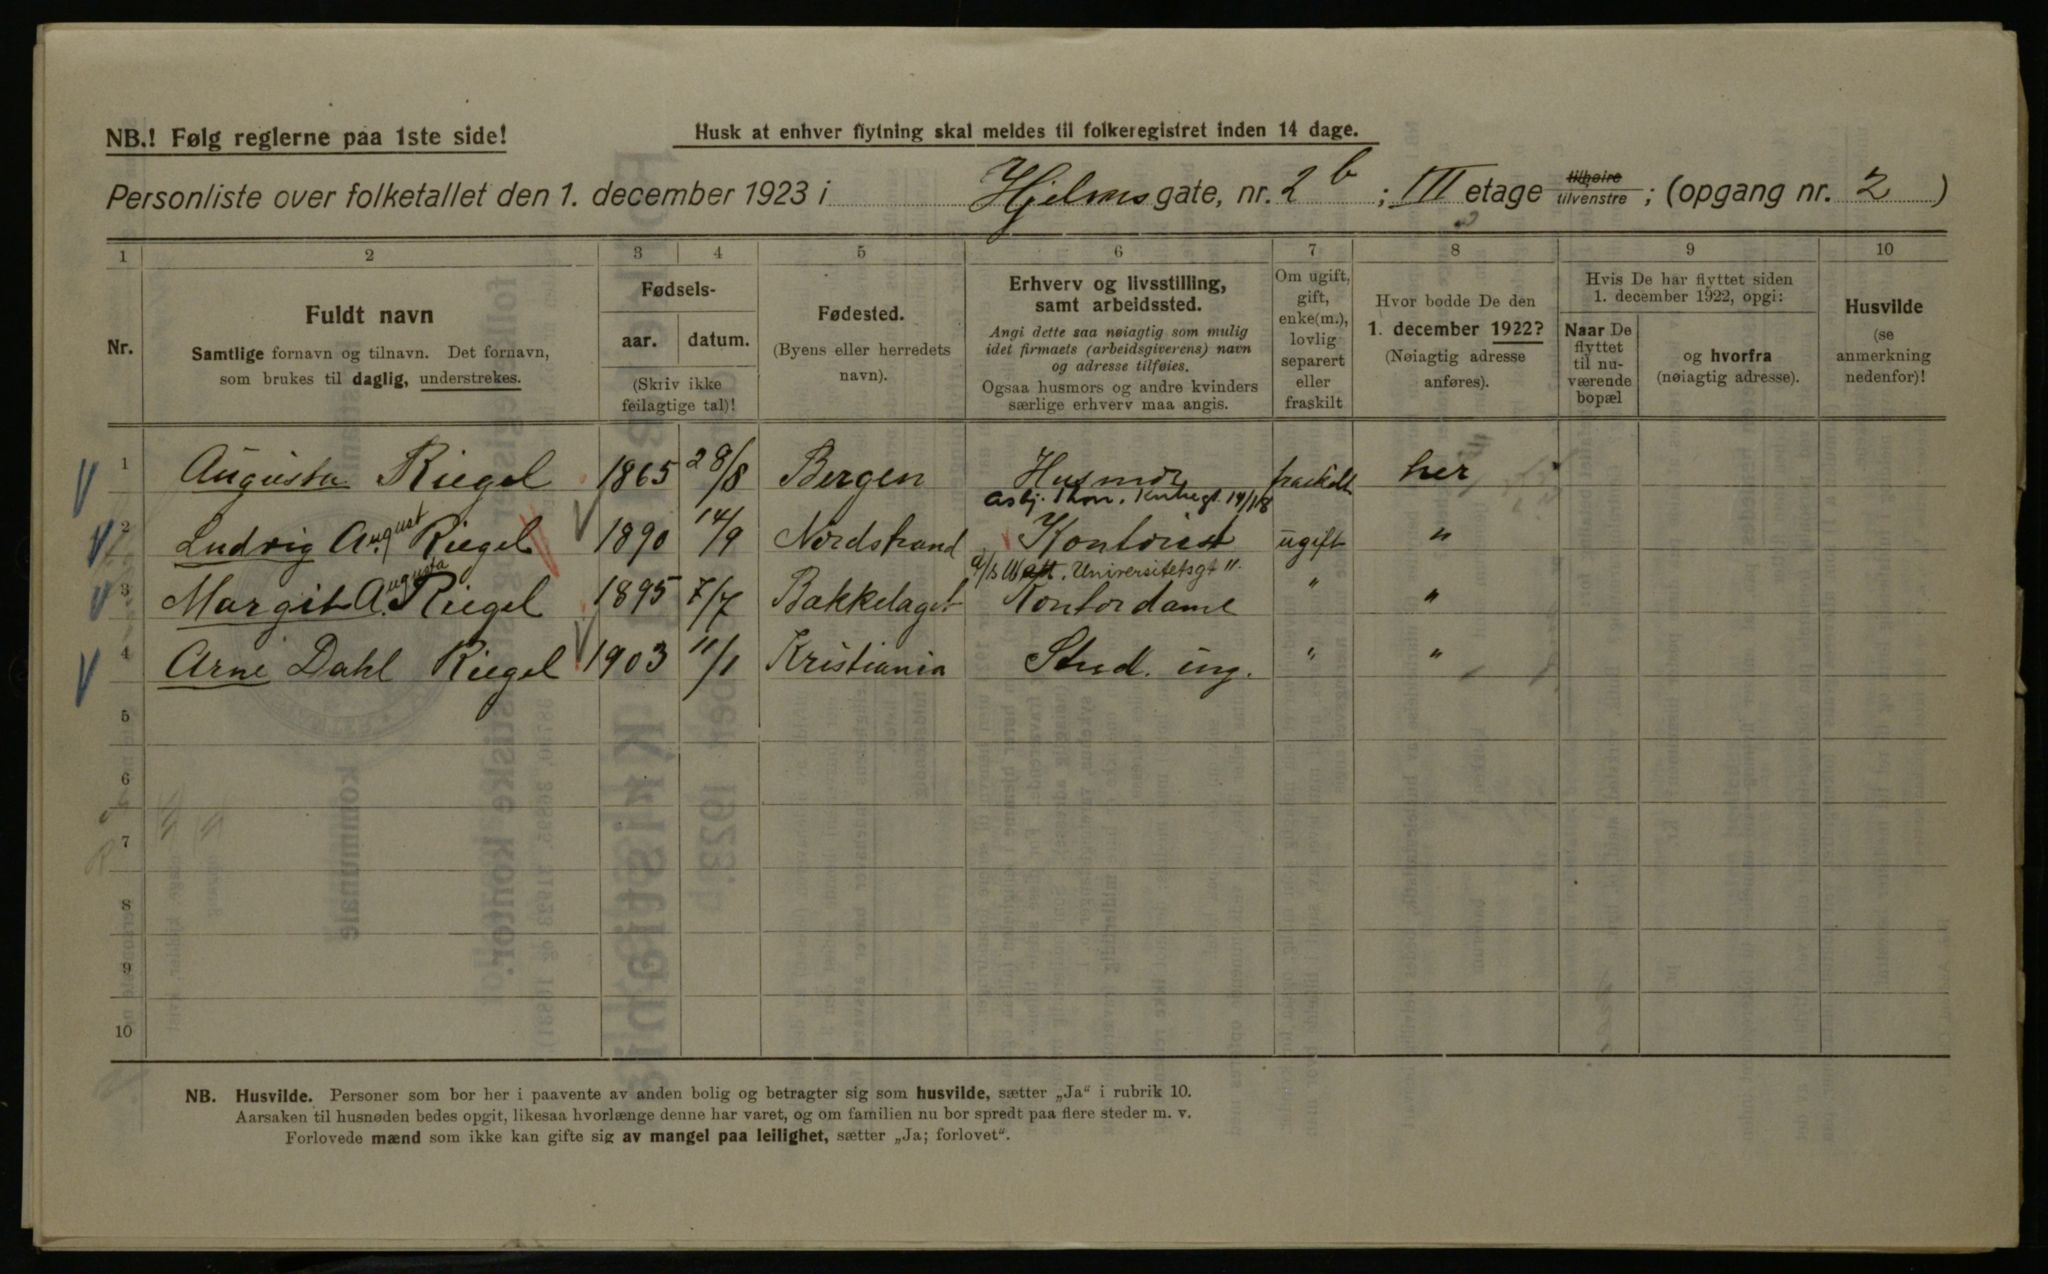 NB.! Følg reglerne paa 1ste side!
Husk at enhver flytning skal meldes til folkeregistret inden 14 dage.
Personliste over folketallet den 1. december 1923 i Hjelmsgate, nr. 2 b ; III etage tilhøire tilvenstre ; (opgang nr. 2 )
1 2 3 4 5 6 7 8 9 10
Nr.
Fuldt navn
Samtlige fornavn og tilnavn. Det fornavn,
som brukes til daglig, understrekes.
Fødsels-
aar. datum.
(Skriv ikke
feilagtige tal)!
Fødested.
(Byens eller herredets
navn).
Erhverv og livsstilling,
samt arbeidssted.
Angi dette saa nøiagtig som mulig
idet firmaets (arbeidsgiverens) navn
og adresse tilføies.
Ogsaa husmors og andre kvinders
særlige erhverv maa angis.
Om ugift,
gift,
enke(m.),
lovlig
separert
eller
fraskilt
Hvor bodde De den
1. december 1922?
(Nøiagtig adresse
anføres).
Hvis De har flyttet siden
1. december 1922, opgi:
Naar De
flyttet
til nu-
værende
bopæl
og hvorfra
(nøiagtig adresse).
Husvilde
(se
anmerkning
nedenfor)!
1 Augusta Riegel 1865 28/8 Bergen Husmor fraskilt her
Asbj. Thon.
2 Ludvig August Riegel 1890 14/9 Nordstrand Kontorist ugift "
A/S Watt. Universitetsgt 11.
3 Margit Augusta Riegel 1895 7/7 Bakkelaget Kontordame " "
4 Arne Dahl Riegel 1903 11/1 Kristiania Stud. ing. " "
5
6
7
8
9
10
NB. Husvilde. Personer som bor her i paavente av anden bolig og betragter sig som husvilde, sætter „Ja“ i rubrik 10.
Aarsaken til husnøden bedes opgit, likesaa hvorlænge denne har varet, og om familien nu bor spredt paa flere steder m. v.
Forlovede mænd som ikke kan gifte sig av mangel paa leilighet, sætter „Ja; forlovet“.